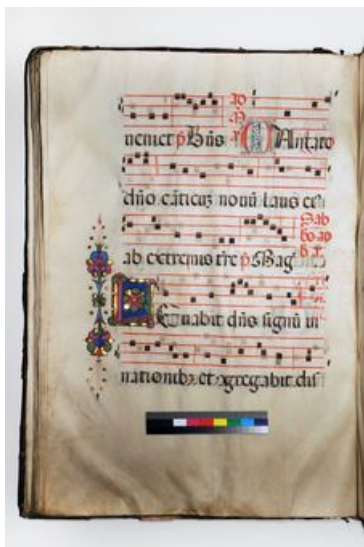 ueniet p̄ Bn̄s CAntate
dn̄o cāticuz nouū laus ei
ab extremis tr̄e p̄ Mag
LEuabit dn̄s signū in
nationibꝫ et ꝯgregabit disp